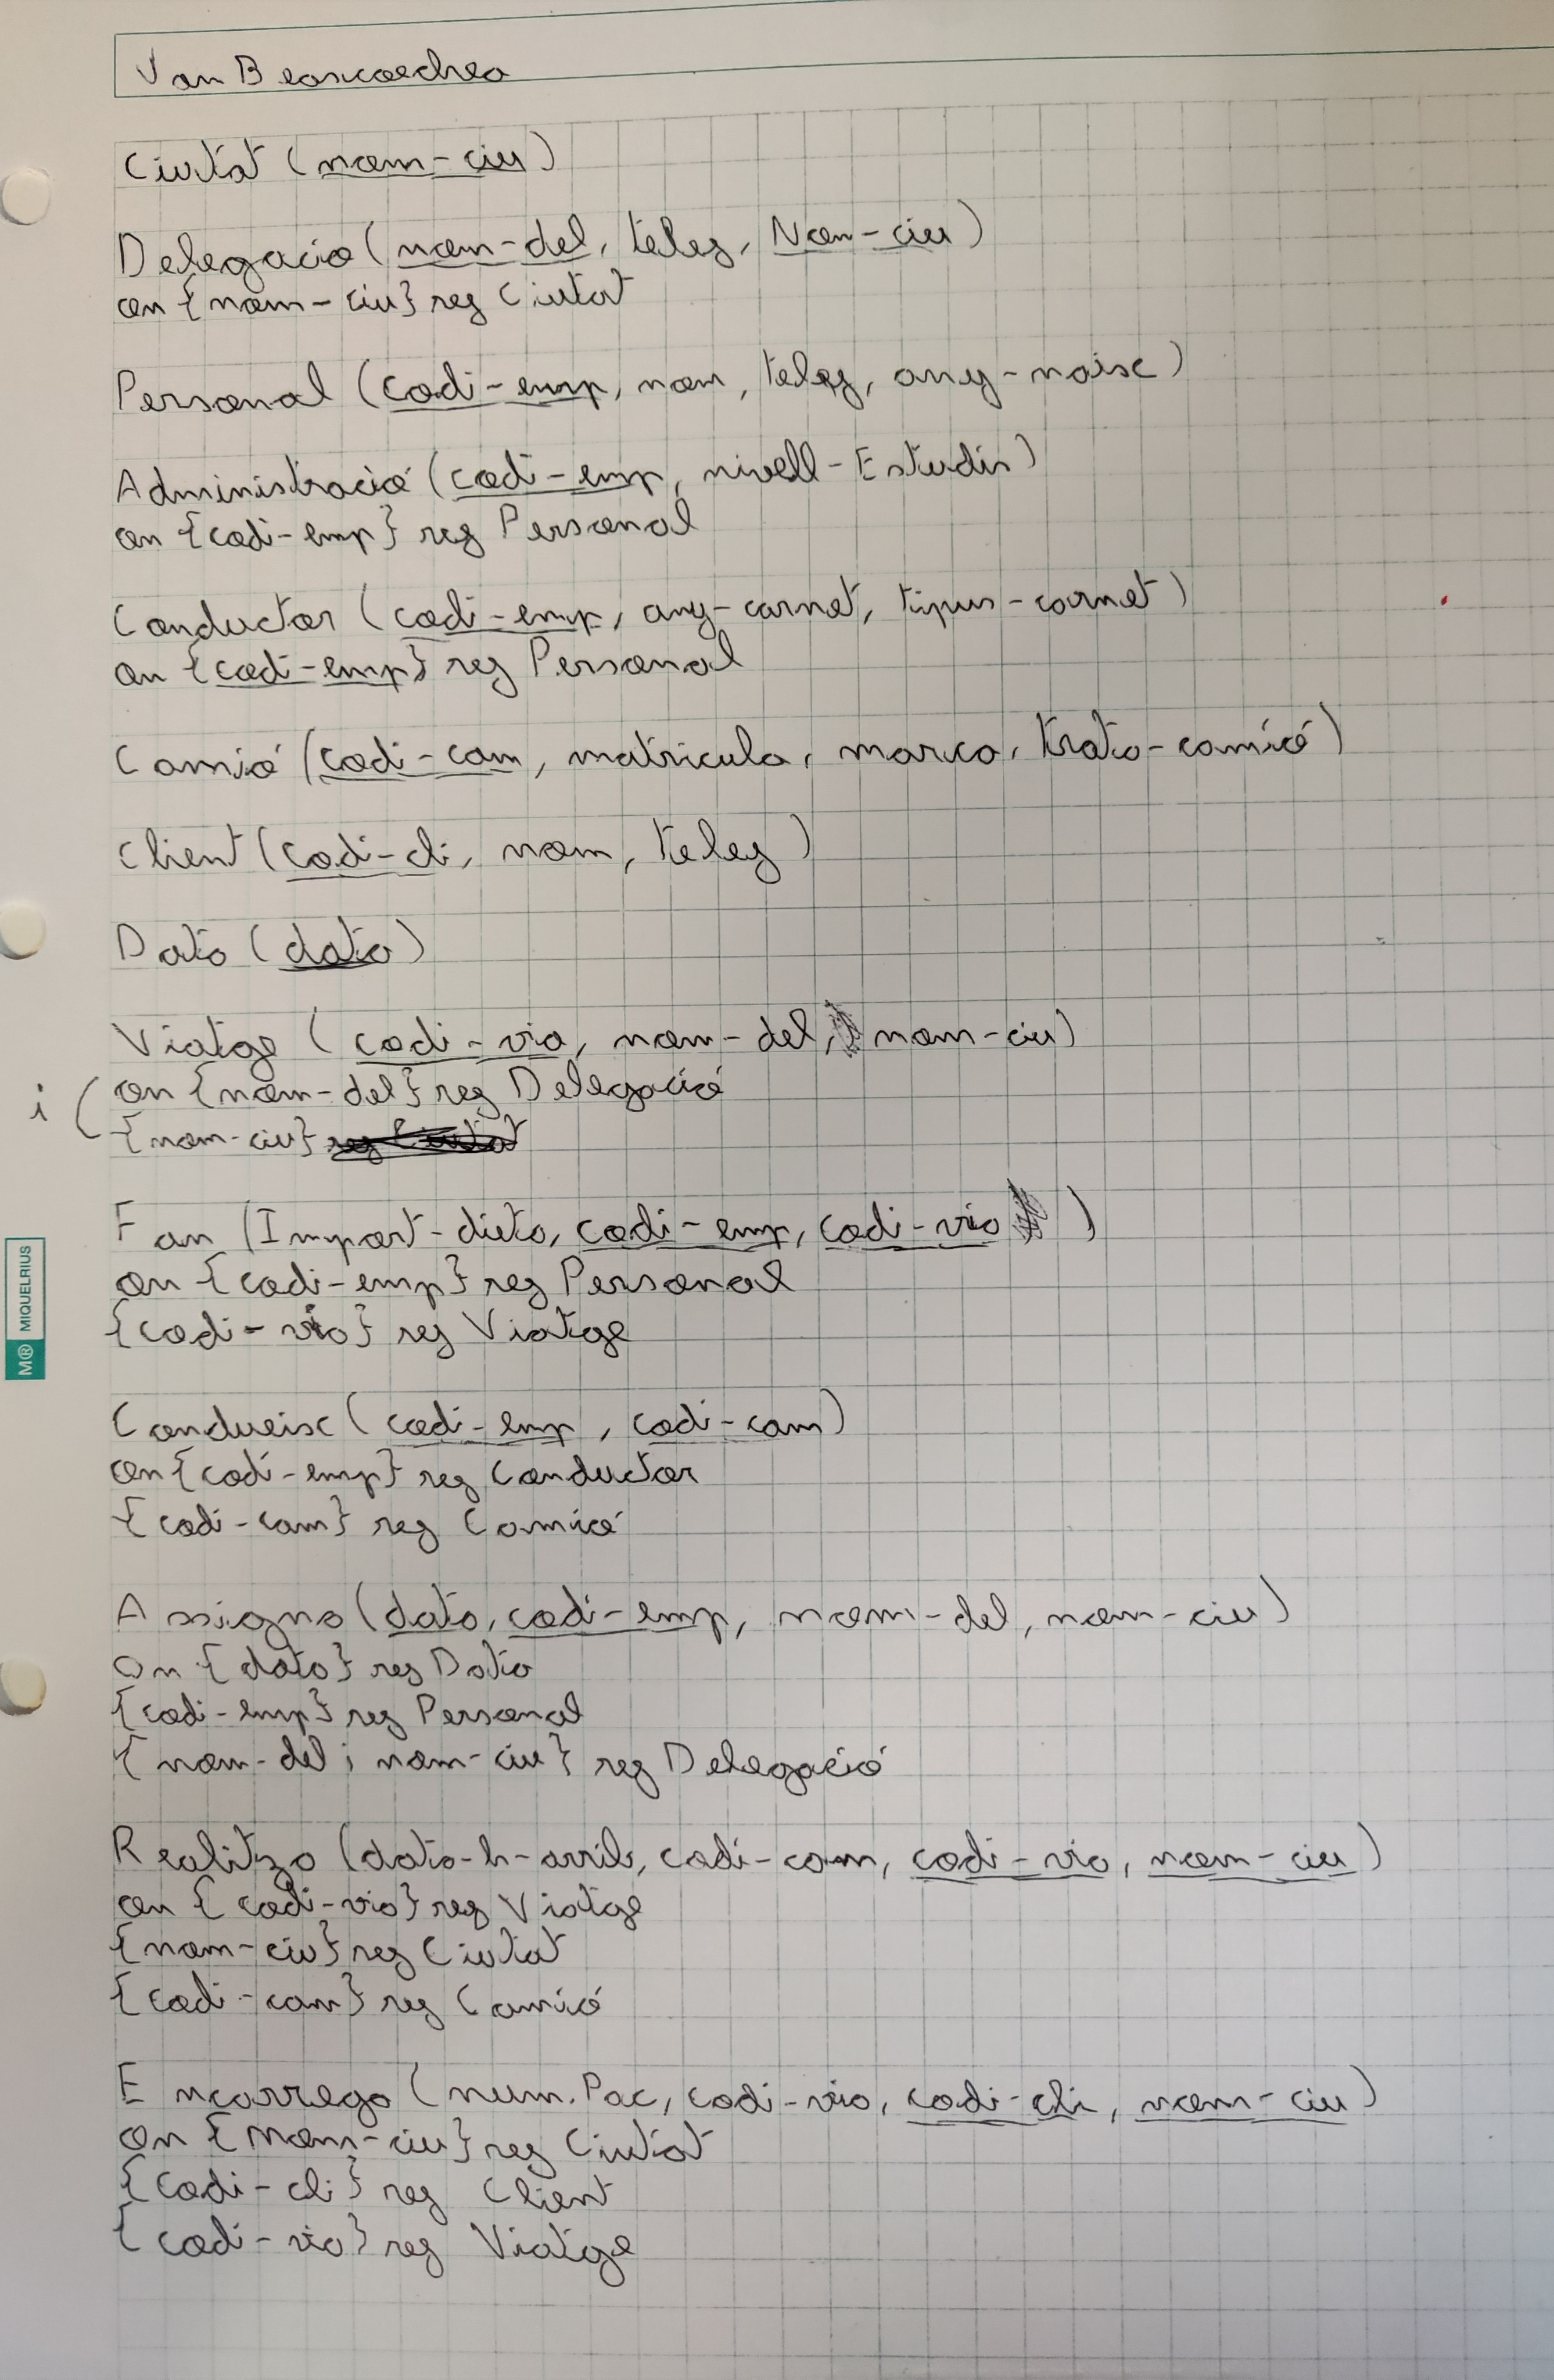 Van Beascoechea
Ciutat (nom-ciu)
Delegacio (nom-del, telef, Nom-ciu)
on {nom-ciu} ref Ciutat
Personal (codi-emp, nom, telef, any-naix)
Administració (codi-emp, nivell-Estudis)
on {codi-emp} ref Personal
Conductor (codi-emp, any-carnet, tipus-carnet)
on {codi-emp} ref Personal
Camió (codi-cam, matricula, marca, trata-camió)
Client (codi-cli, nom, telef)
Data (data)
Viatge (codi-via, nom-del, nom-ciu)
on {nom-del} ref Delegació
i ( {nom-ciu} ref Ciutat
Fan (Import-dieta, codi-emp, codi-via)
on {codi-emp} ref Personal
{codi-via} ref Viatge
M® MIQUELRIUS
Condueix (codi-emp, codi-cam)
on {codi-emp} ref Conductor
{codi-cam} ref Camió
Assigna (data, codi-emp, nom-del, nom-ciu)
On {data} ref Data
{codi-emp} ref Personal
{nom-del i nom-ciu} ref Delegació
Realitza (data-h-arrib, codi-cam, codi-via, nom-ciu)
on {codi-via} ref Viatge
{nom-ciu} ref Ciutat
{codi-cam} ref Camió
Encarrega (num.Pac, codi-via, codi-cli, nom-ciu)
on {Nom-ciu} ref Ciutat
{codi-cli} ref Client
{codi-via} ref Viatge